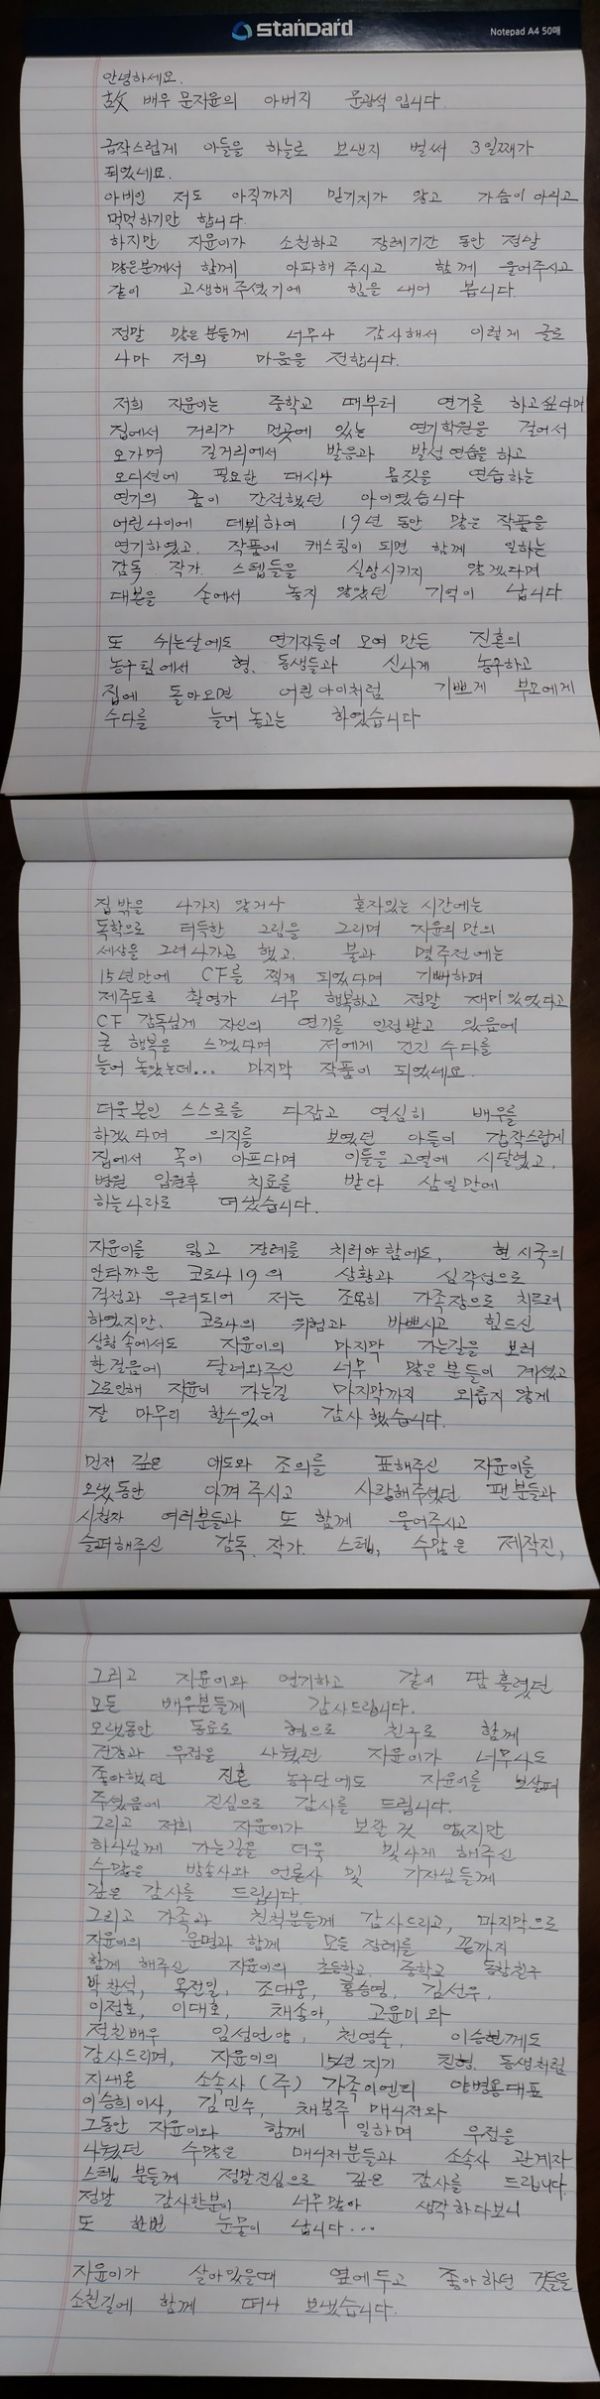 standard
Notepad A4 50매
안녕하세요.
故 배우 문지윤의 아버지 문광석 입니다.
급작스럽게 아들을 하늘로 보낸지 벌써 3일째가
되었네요.
아비인 저도 아직까지 믿기지가 않고 가슴이 아리고
먹먹하기만 합니다.
하지만 지윤이가 소천하고 장례기간 동안 정말
많은분께서 함께 아파해 주시고 함께 울어주시고
같이 고생해 주셨기에 힘을 내어 봅니다.
정말 많은 분들께 너무나 감사해서 이렇게 글로
나마 저의 마음을 전합니다.
저희 지윤이는 중학교 때부터 연기를 하고싶다며
집에서 거리가 먼곳에 있는 연기학원을 걸어서
오가며 길거리에서 발음과 발성연습을 하고
오디션에 필요한 대사나 몸짓을 연습하는
연기의 꿈이 간절했던 아이였습니다
어린나이에 데뷔하여 19년 동안 많은 작품을
연기하였고. 작품에 캐스팅이 되면 함께 일하는
감독. 작가. 스텝들을 실망시키지 않겠다며
대본을 손에서 놓지 않았던 기억이 납니다.
또 쉬는날에도 연기자들이 모여 만든 진혼의
농구팀에서 형, 동생들과 신나게 농구하고
집에 돌아오면 어린아이처럼 기쁘게 부모에게
수다를 늘어 놓고는 하였습니다
집 밖을 나가지 않거나 혼자있는 시간에는
독학으로 터득한 그림을 그리며 지윤의 만의
세상을 그려나가곤 했고. 불과 몇주전에는
15년만에 CF를 찍게 되었다며 기뻐하며
제주도로 촬영가 너무 행복하고 정말 재미있었다고
CF 감독님게 자신의 연기를 인정받고 있음에
큰 행복을 느꼈다며 저에게 긴긴 수다를
늘어 놓았는데... 마지막 작품이 되었네요.
더욱 본인 스스로를 다잡고 열심히 배우를
하겠다며 의지를 보였던 아들이 갑작스럽게
집에서 목이 아프다며 이틀을 고열에 시달렸고,
병원 입원후 치료를 받다 삼일만에
하늘나라로 떠났습니다.
지윤이를 잃고 장례를 치러야 함에도, 현 시국의
안타까운 코로나19의 상황과 심각성으로
걱정과 우려되어 저는 조용히 가족장으로 치르려
하였지만. 코로나의 위험과 바쁘시고 힘드신
상황 속에서도 지윤이의 마지막 가는길을 보러
한걸음에 달려와주신 너무 많은 분들이 계셨고
그로인해 지윤이 가는길 마지막까지 외롭지 않게
잘 마무리 할수있어 감사했습니다.
먼저 깊은 애도와 조의를 표해주신 지윤이를
오랫동안 아껴 주시고 사랑해주셨던 팬분들과
시청자 여러분들과 또 함께 울어주시고
슬퍼해주신 감독. 작가. 스텝, 수많은 제작진,
그리고 지윤이와 연기하고 같이 땀 흘렸던
모든 배우분들께 감사드립니다.
오랫동안 동료로 형으로 친구로 함께
건강과 우정을 나눴던 지윤이가 너무나도
좋아했던 진혼 농구단에도 지윤이를 보살펴
주셨음에 진심으로 감사를 드립니다.
그리고 저희 지윤이가 보잘 것 없지만
하나님께 가는길을 더욱 빛나게 해주신
수많은 방송사와 언론사 및 기자님들께
깊은 감사를 드립니다.
그리고 가족과 친척분들께 감사드리고, 마지막으로
지윤이의 운명과 함께 모든 장례를 끝까지
함께 해주신 지윤이의 초등학교. 중학교 동창친구
박찬석, 옥전일, 조대웅, 홍승영, 김선우,
이정호, 이대호, 채송아, 고윤미 와
절친배우 임성언양, 천영술, 이승현께도
감사드리며, 지윤이의 15년 지기 친형. 동생처럼
지내온 소속사 (주) 가족이엔티 양병용대표
이승희이사, 김민수, 채봉주 매니저와
그동안 지윤이와 함께 일하며 우정을
나눴던 수많은 매니저분들과 소속사 관계자
스텝 분들께 정말진심으로 깊은 감사를 드립니다.
정말 감사한분이 너무많아 생각하다보니
또 한번 눈물이 납니다...
지윤이가 살아있을때 옆에두고 좋아하던 것들을
소천길에 함께 떠나 보냈습니다.